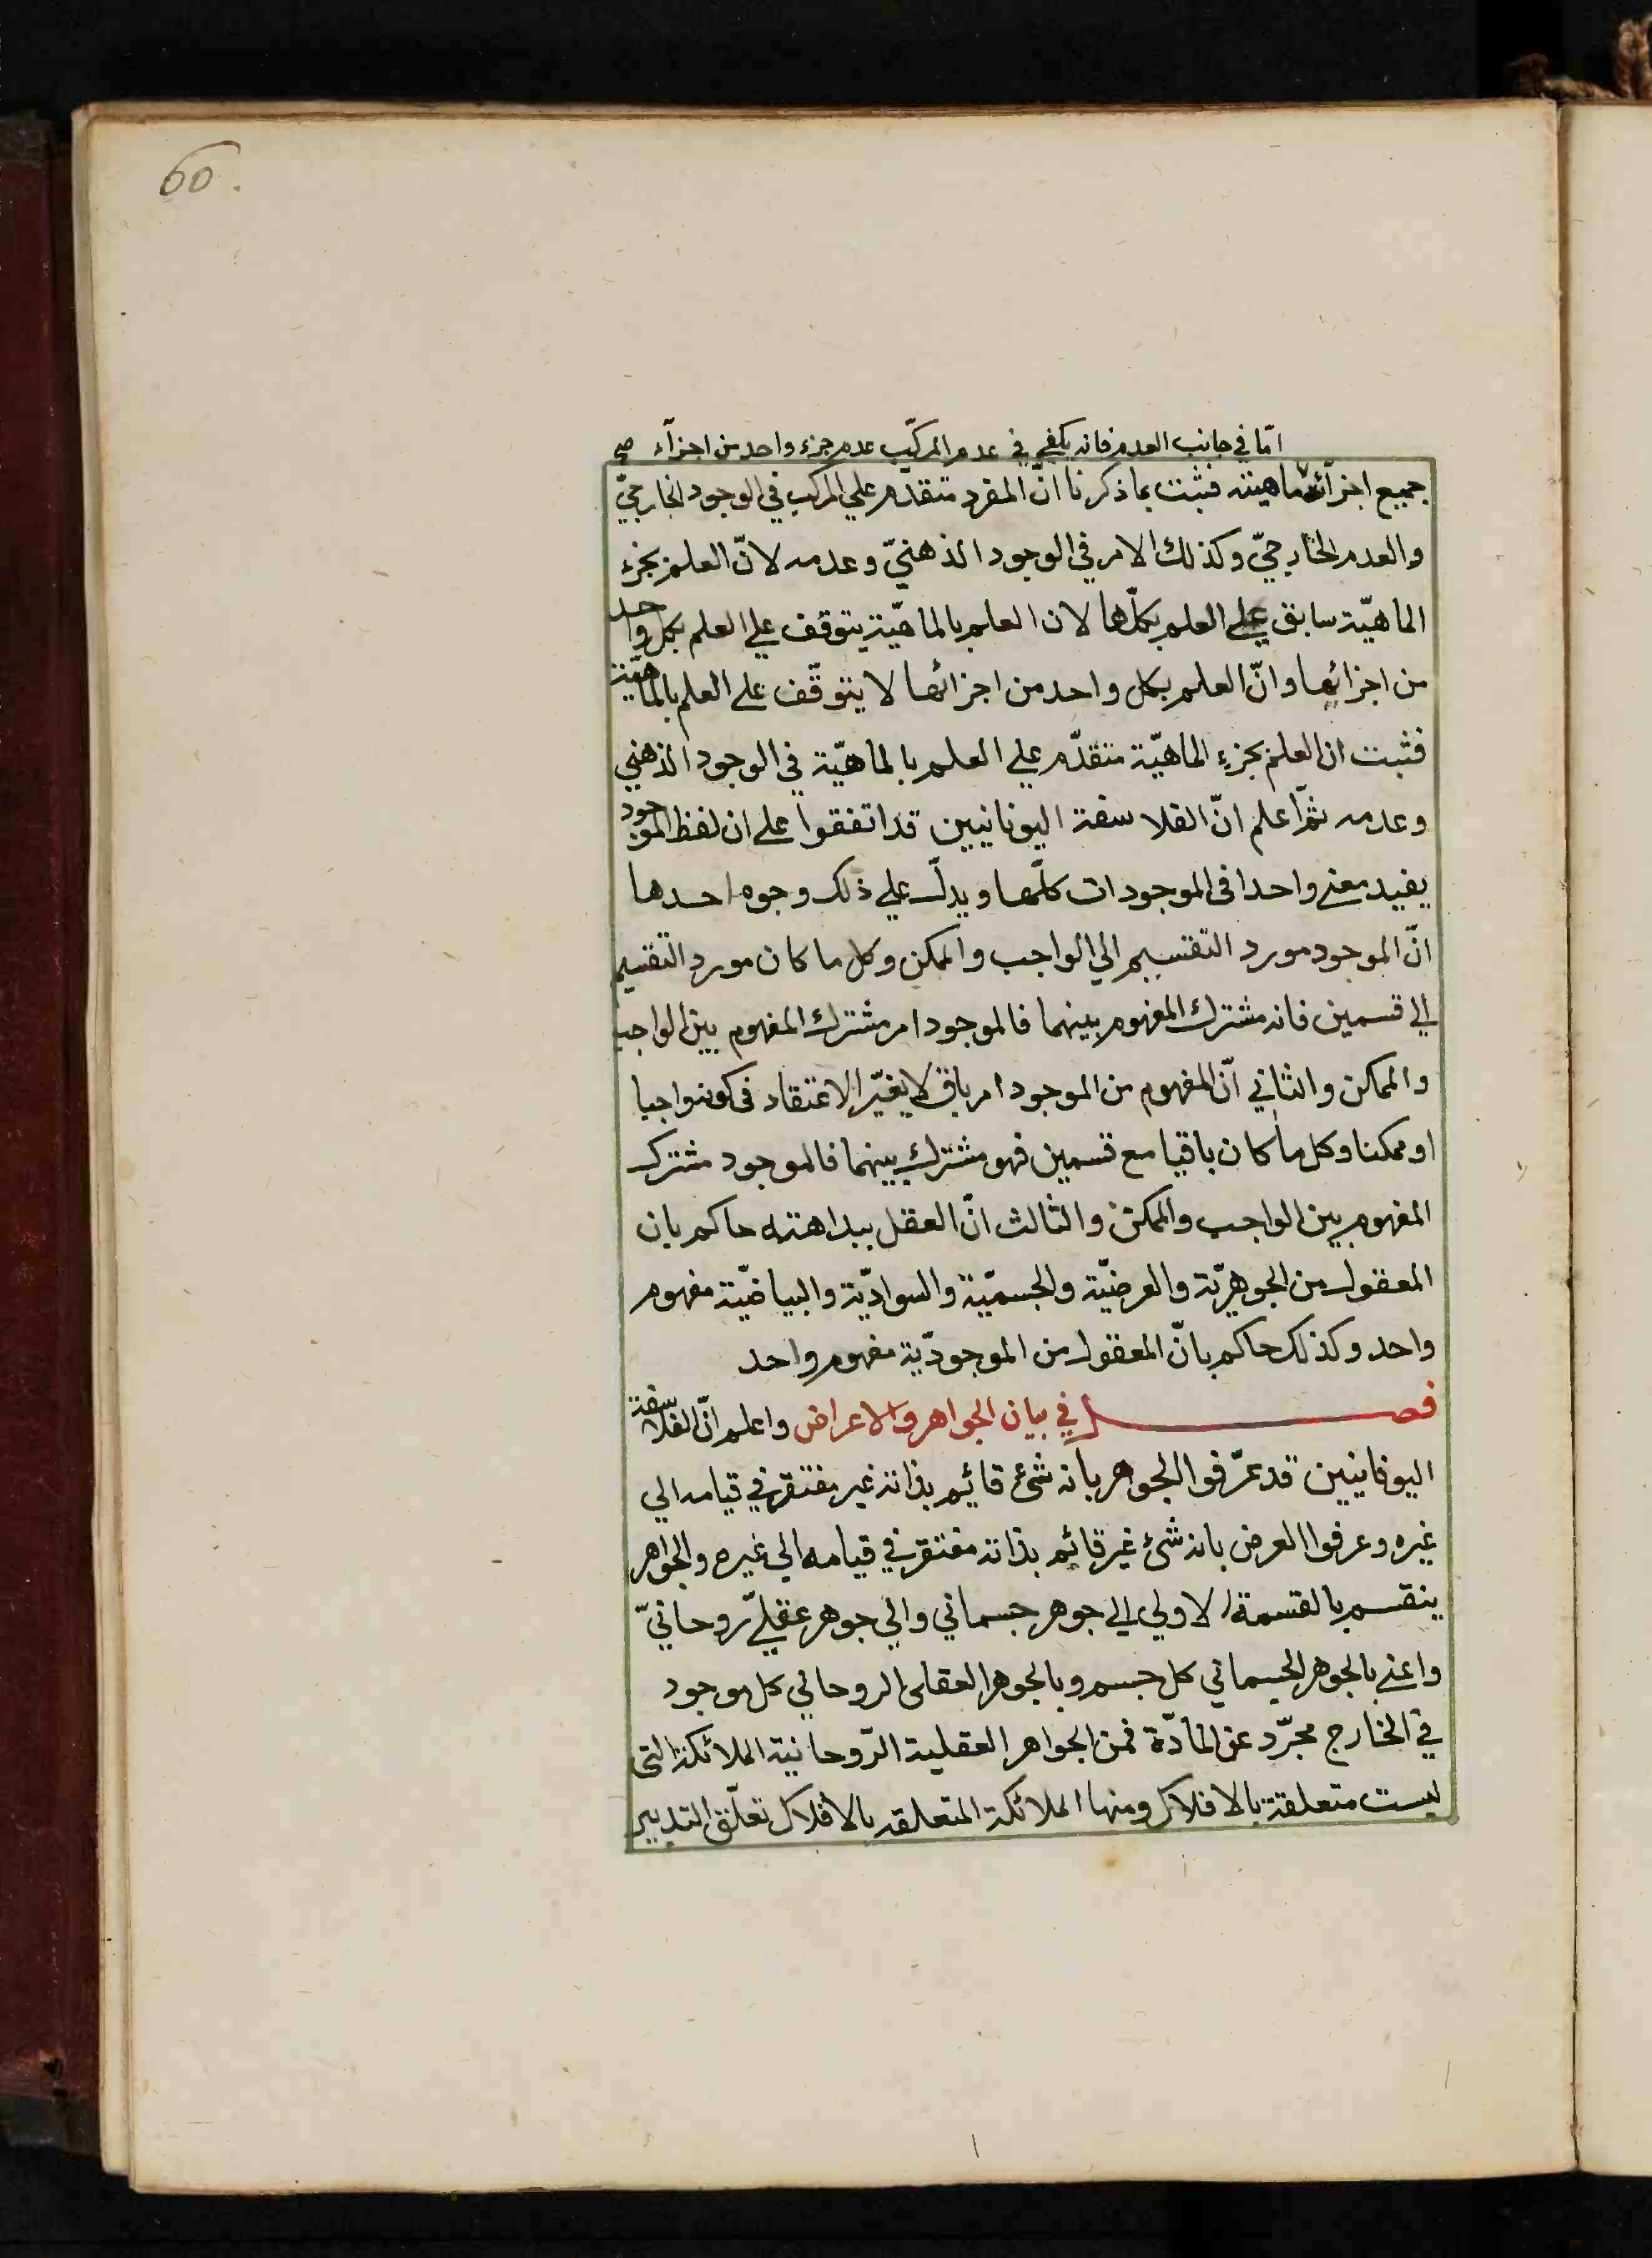 60.
امّا في جانب العدم فانه يكفي في عدم المركّب عدم جزء واحد من اجزآء صح
جميع اجزآئه ماهيته فثبت بما ذكرنا انّ المفرد متقدّم علي المركب في الوجود الخارجيّ
والعدم الخارجيّ وكذلك الامر في الوجود الذهنيّ وعدمه لانّ العلم بجزء
الماهيّة سابق علي العلم بكلّها لان العلم بالماهيّة يتوقف علي العلم بكل واحد
من اجزائها وانّ العلم بكل واحد من اجزائها لا يتوقّف علي العلم بالماهيّة
فثبت ان العلم بجزء الماهيّة متقدّم علي العلم بالماهيّة في الوجود الذهني
وعدمه ثمّ اعلم انّ الفلاسفة اليونانيين قد اتفقوا علي ان لفظ الموجود
يفيد معني واحدا فى الموجودات كلّها ويدلّ علي ذلك وجوه احدها
انّ الموجود مورد التقسيم الي الواجب والممكن وكل ما كان مورد التقسيم
الي قسمين فانه مشترك المفهوم بينهما فالموجود امر مشترك المفهوم بين الواجب
والممكن والثاني انّ المفهوم من الموجود امر باق لا يغيّر الاعتقاد فى كونه واجبا
او ممكنا وكل ما كان باقيا مع قسمين فهو مشترك بينهما فالموجود مشترك
المفهوم بين الواجب والممكن والثالث انّ العقل ببداهته حاكم بان
المعقول من الجوهريّة والعرضيّة والجسميّة والسواديّة والبياضيّة مفهوم
واحد وكذلك حاكم بانّ المعقول من الموجوديّة مفهوم واحد
فصل في بيان الجواهر والاعراض واعلم انّ الفلاسفة
اليونانيين قد عرّفوا الجوهر بانه شئ قائيم بذاته غير مفتقر في قيامه الي
غيره وعرفوا العرض بانه شئ غير قائيم بذاته مفتقر في قيامه الي غيره والجواهر
ينقسم بالقسمة الاولي الي جوهر جسماني والي جوهر عقليّ روحانيّ
واعني بالجوهر الجسماني كل جسم وبالجوهر العقلى الروحاني كل موجود
في الخارج مجرّد عن المادّة فمن الجواهر العقلية الرّوحانية الملائكة التى
ليست متعلقة بالافلاك ومنها الملائكة المتعلقه بالافلاك تعلّق التدبير